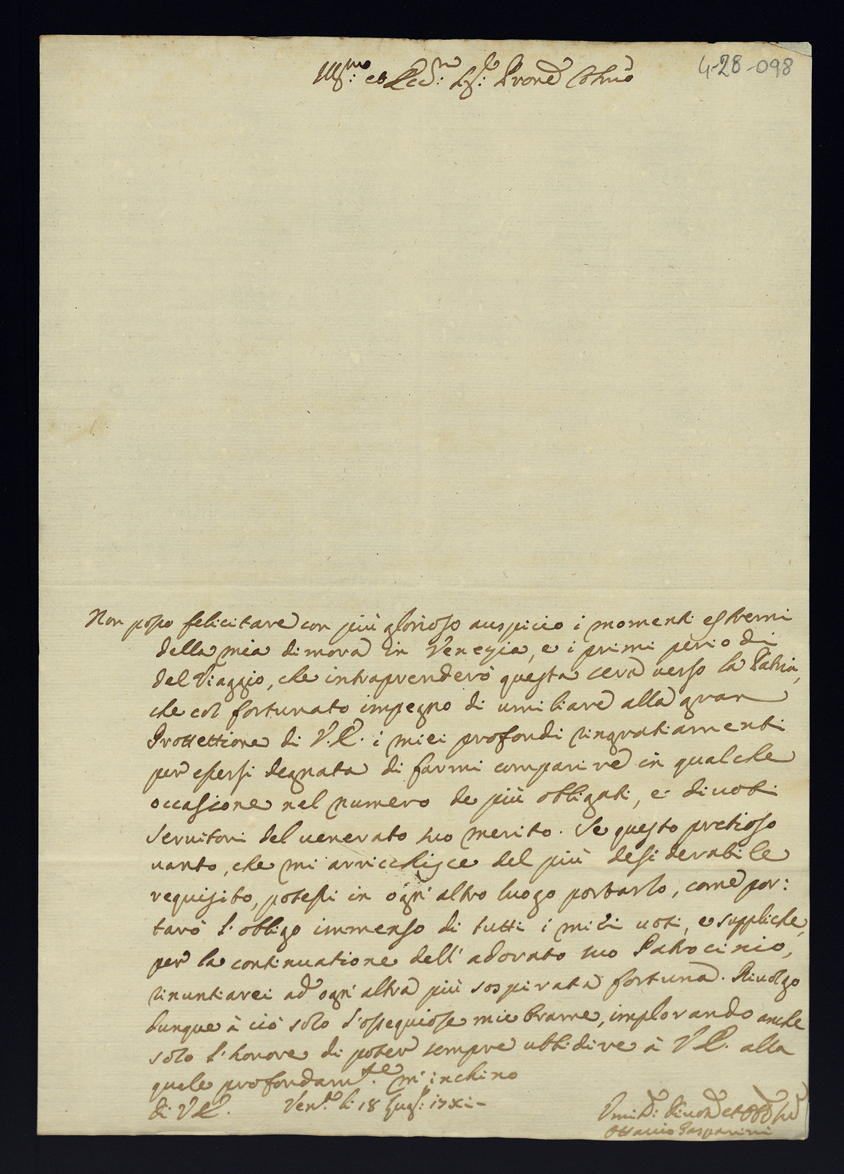 Ill.mo et Ecc.mo Sig.r Pron Col.mo
4-28-098
Non posso felicitare con più glorioso auspicio i momenti estremi
della mia dimora in Venezia, e i primi periodi
del Viaggio, che intraprenderò questa sera verso la Patria,
che col fortunato impegno di umiliare alla gran
Prottettione di V.E. i miei profondi ringratiamenti
per essersi degnata di farmi comparire in qualche
occassione nel numero de più obligati, e divoti
Servitori del venerato suo merito. Se questo pretioso
vanto, che mi arricchisce del più desiderabile
requisito, potessi in ogn'altro luogo portarlo, come por:
tarò l'obligo immenso di tutti i miei voti, e suppliche,
per la continuatione dell'adorato suo Patrocinio,
rinuntiarei ad ogn'altra più sospirata fortuna. Rivolgo
dunque à ciò solo l'ossequiose mie brame, implorando anche
solo l'honore di poter sempre ubbidire à V.E. alla
quale profondam.te m'inchino
di V.E. Ven.a li 18 17xi-
Umil.o Divot.o et Obb.o
Ottavio Gasparini